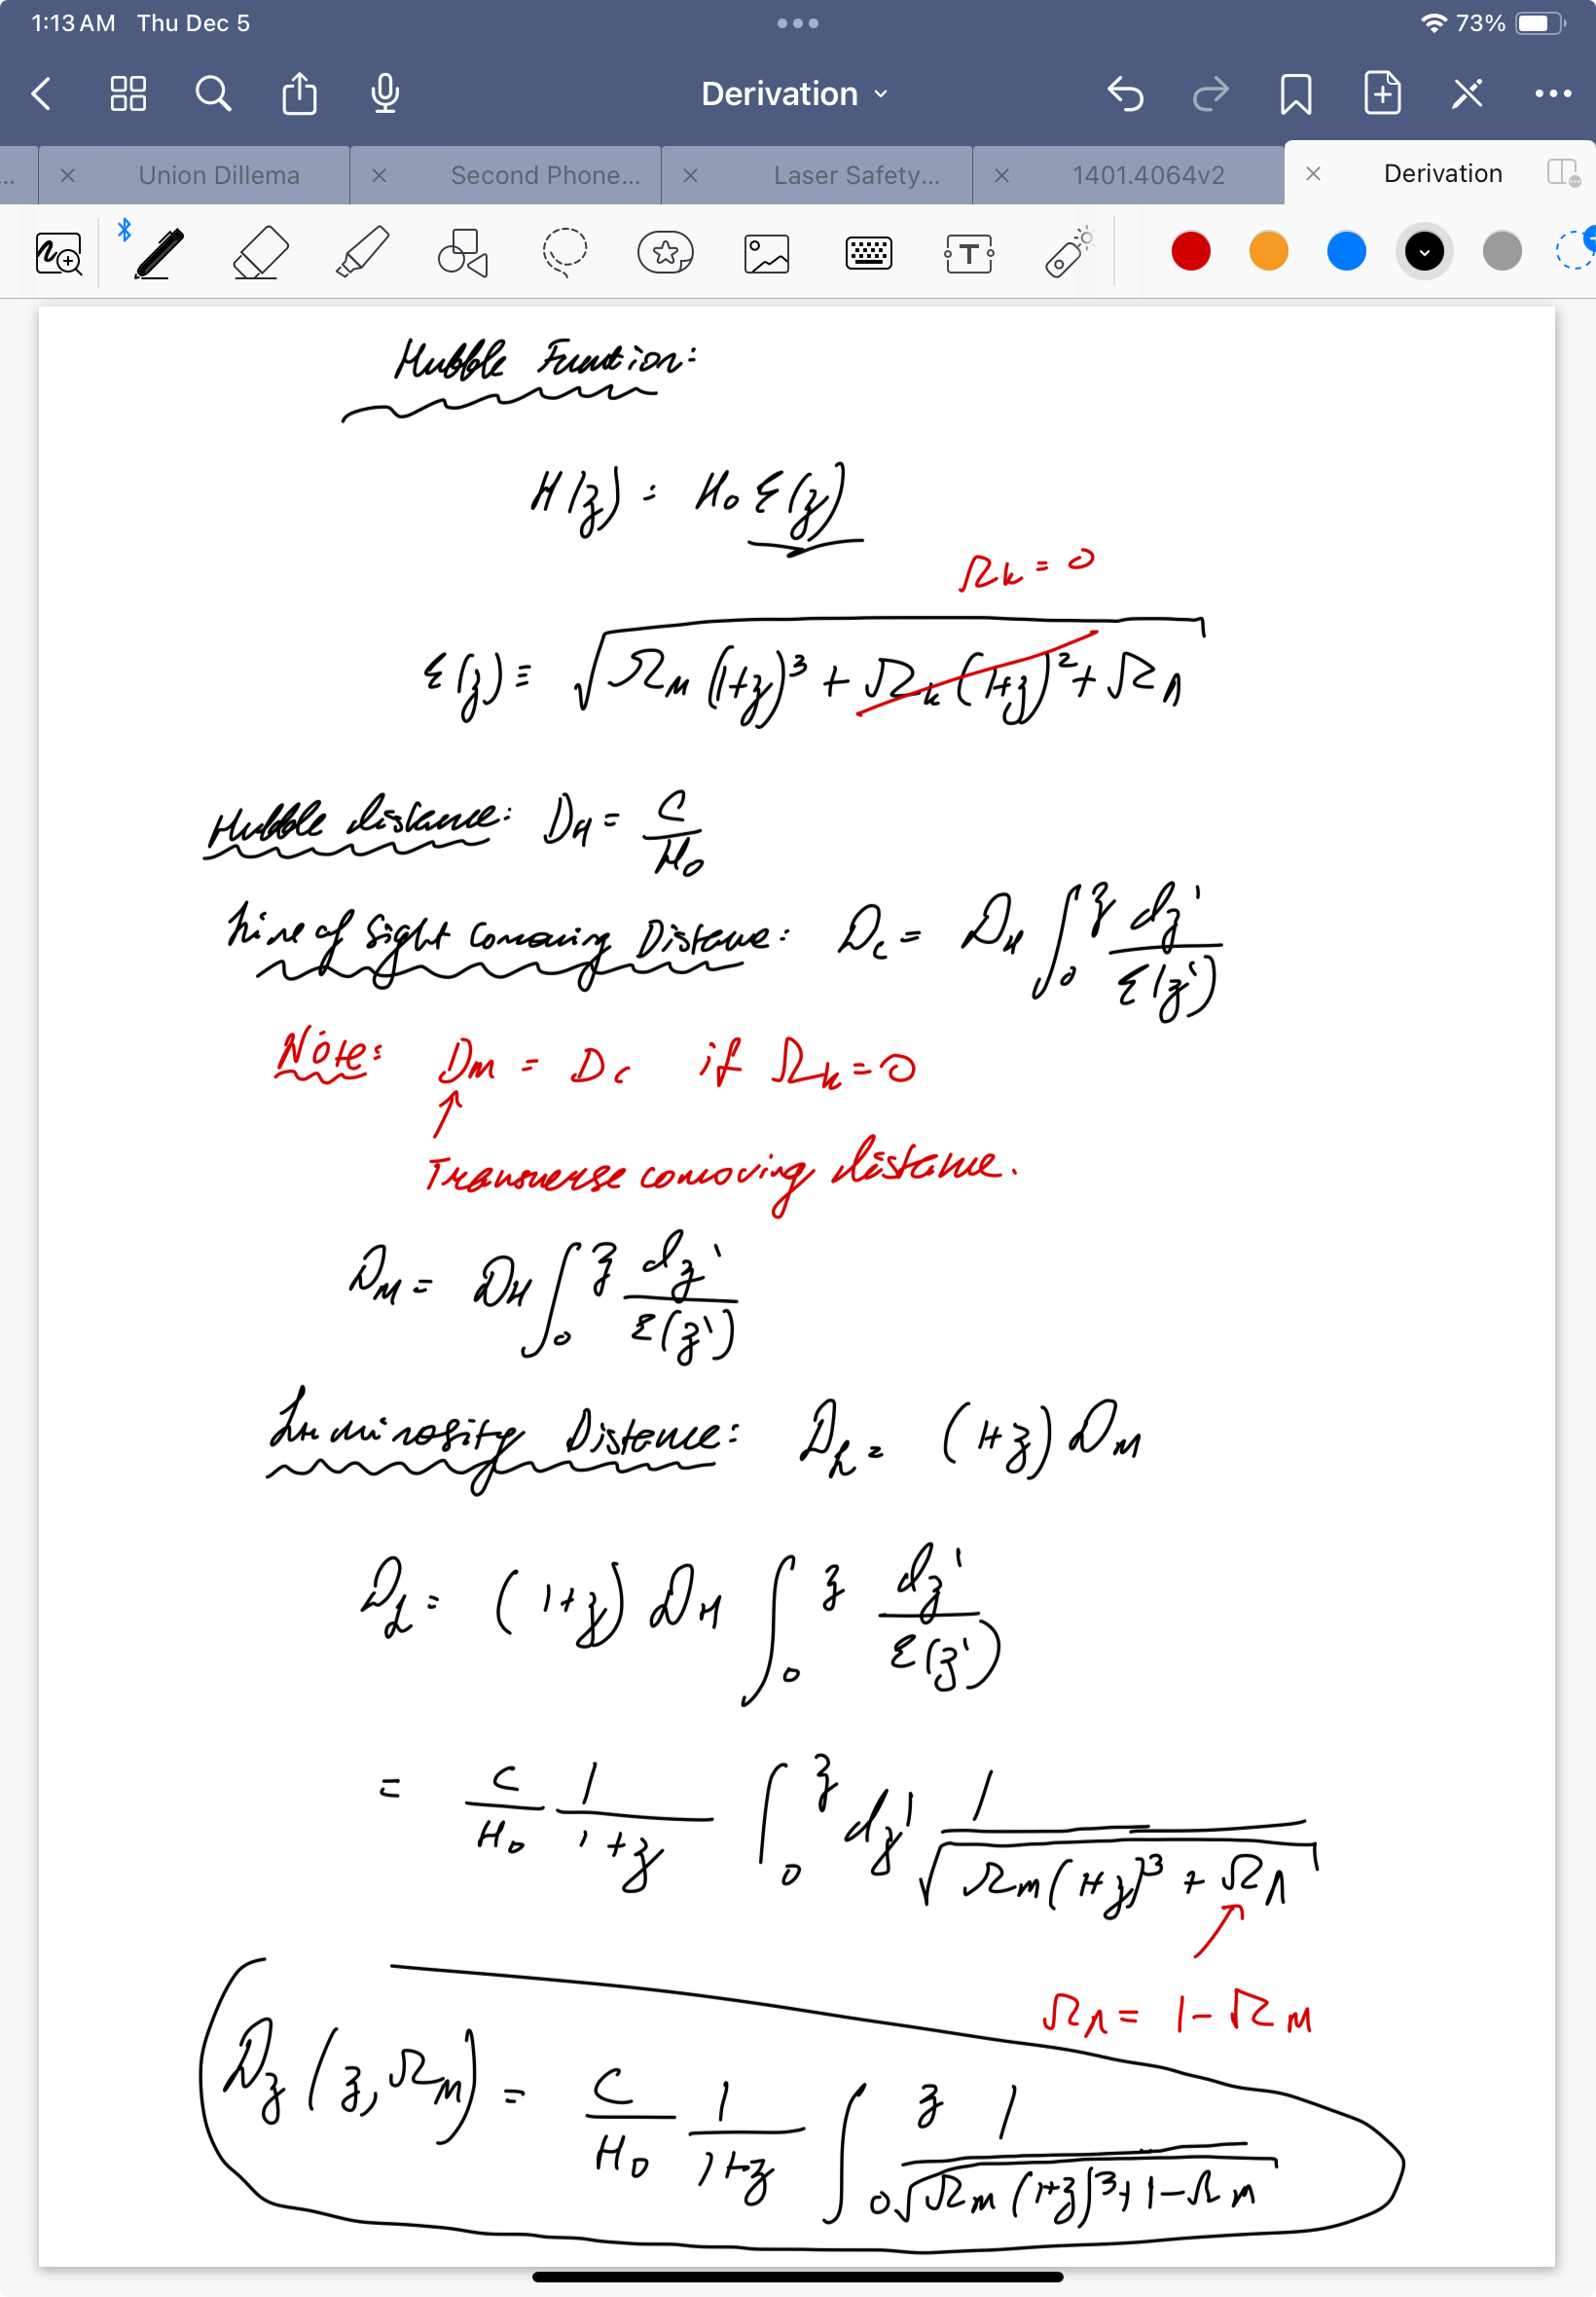 1:13 AM Thu Dec 5 73%
Derivation
... Union Dillema Second Phone... Laser Safety... 1401.4064v2 Derivation
T
Hubble Function:
H(z) = H₀ E(z)
Ωk = 0
E(z) ≡ √(Ωm (1+z)³ + Ωk (1+z)² + ΩΛ)
Hubble distance: D_H = c/H₀
Line of sight Comoving Distance: D_c = D_H ∫₀^z dz'/E(z')
Note: D_m = D_c if Ωk = 0
↑
Transverse comoving distance.
D_M = D_H ∫₀^z dz'/E(z')
Luminosity Distance: D_L = (1+z) D_M
D_L = (1+z) D_H ∫₀^z dz'/E(z')
= c/H₀ 1/(1+z) ∫₀^z dz' 1/√(Ωm(1+z)³ + ΩΛ)
ΩΛ = 1 - Ωm
D_z (z, Ωm) = c/H₀ 1/(1+z) ∫₀^z 1/√(Ωm (1+z)³ + 1 - Ωm)